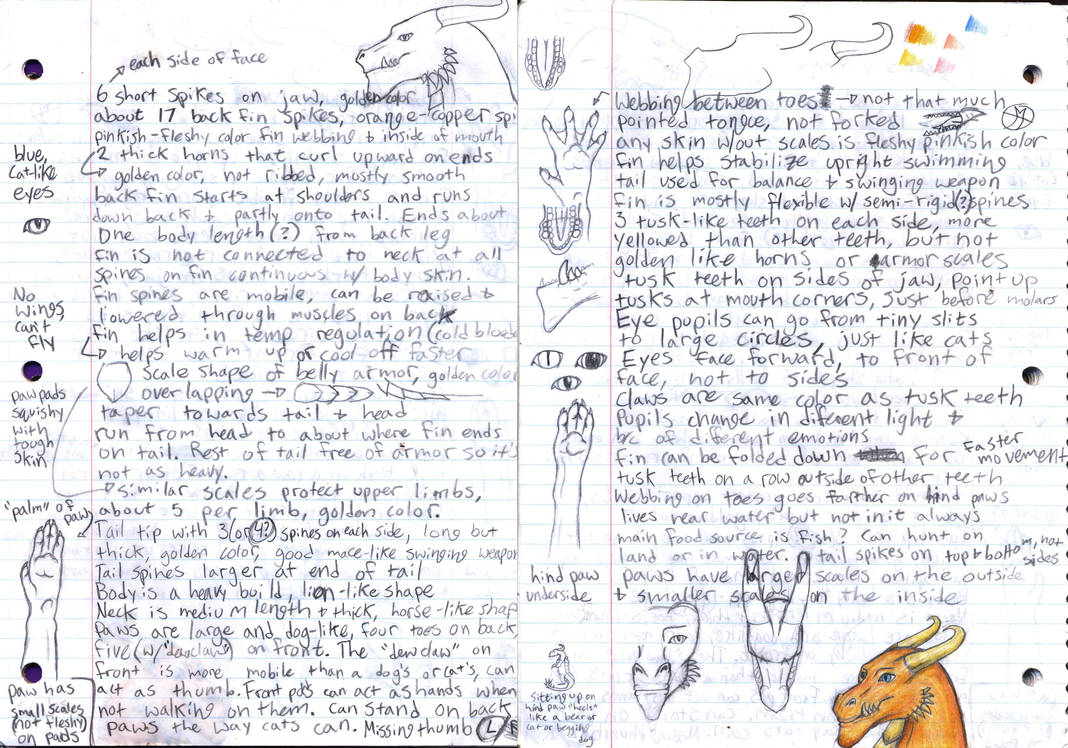 each side of face
6 short spikes on jaw, golden color
about 17 back fin spikes, orange-copper spi
pinkish-fleshy color fin webbing & inside of mouth
2 thick horns that curl upward on ends
golden color, not ribbed, mostly smooth
back fin starts at shoulders and runs
down back & partly onto tail. Ends about
One body length(?) from back leg
fin is not connected to neck at all
spines on fin continuous w/ body skin.
fin spines are mobile, can be raised &
lowered through muscles on back
fin helps in temp regulation (cold bloode
helps warm up or cool off faster
scale shape of belly armor, golden color
overlapping
taper towards tail & head
run from head to about where fin ends
on tail. Rest of tail free of armor so it's
not as heavy.
similar scales protect upper limbs,
about 5 per limb, golden color.
Tail tip with 3(or 4?) spines on each side, long but
thick, golden color, good mace-like swinging weapon
Tail spines larger at end of tail
Body is a heavy build, lion-like shape
Neck is medium length & thick, horse-like shap
Paws are large and dog-like, four toes on back,
five (w/"dewclaw") on front. The "dewclaw" on
front is more mobile than a dog's or cat's, can
act as thumb. Front pds can act as hands when
not walking on them. Can stand on back
paws the way cats can. Missing thumb L
blue,
Cat-like
eyes
No
wings,
can't
fly
paw pads
squishy
with
tough
skin
"palm" of
paw
paw has
small scales
(not fleshy)
on pads
Webbing between toes not that much
pointed tongue, not forked
any skin w/out scales is fleshy pinkish color
fin helps stabilize upright swimming
tail used for balance & swinging weapon
fin is mostly flexible w/ semi-rigid(?) spines
3 tusk-like teeth on each side, more
yellowed than other teeth, but not
golden like horns or armor scales
tusk teeth on sides of jaw, point up
tusks at mouth corners, just before molars
Eye pupils can go from tiny slits
to large circles, just like cats
Eyes face forward, to front of
face, not to sides
Claws are same color as tusk teeth
Pupils change in different light &
b/c of different emotions
fin can be folded down for faster movement
tusk teeth on a row outside of other teeth
Webbing on toes goes farther on hind paws
lives near water but not in it always
main food source is fish? Can hunt on
land or in water. tail spikes on top & bottom, not sides
paws have larger scales on the outside
& smaller scales on the inside
hind paw
underside
Sitting up on
hind paw "heels"
like a bear or
cat or begging
dog